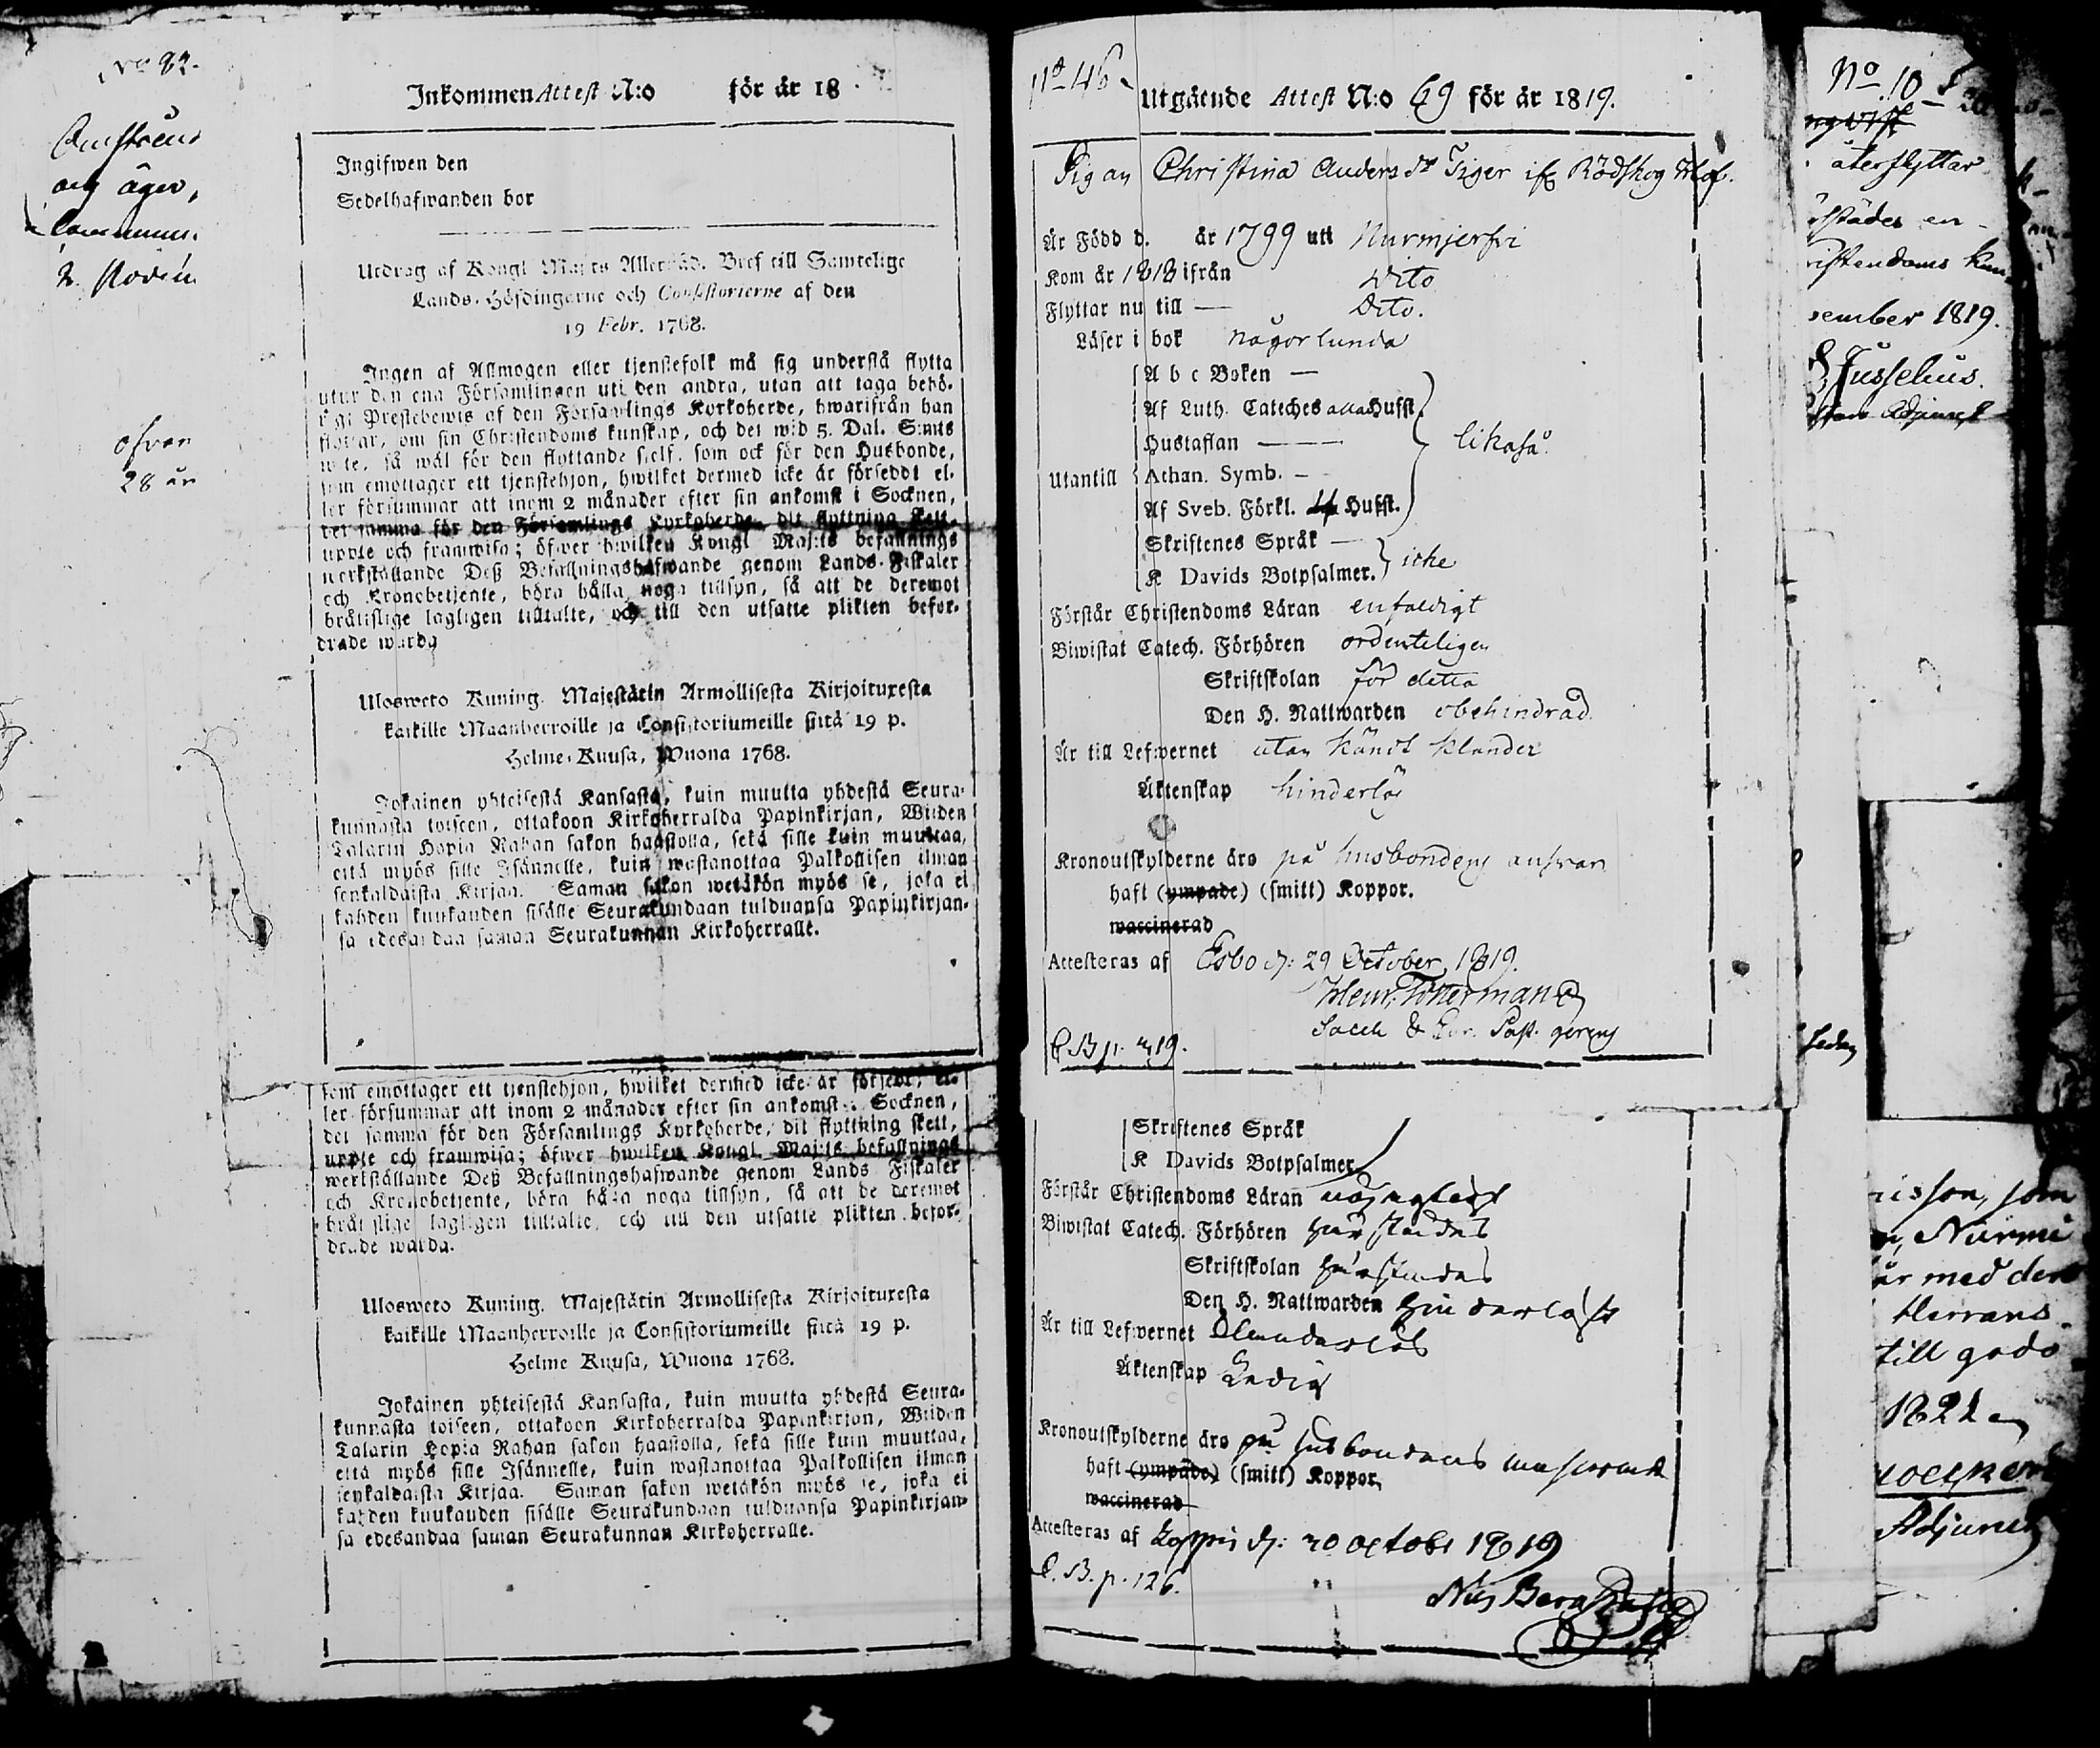 No 82.
ofvan
28 år
Inkommen Attest N:o för år 18
Ingifwen den
Sedelhafwanden bor
Utdrag af Kongl Maj:ts Allernåd. Bref till Samtelige
Lands-Höfdingarne och Consistorierne af den
19 Febr. 1768.
Ingen af Allmogen eller tjenstefolk må sig understå flytta
utur den ena Församlingen uti den andra, utan att taga behö-
rigt Prestebewis af den Församlings Kyrkoherde, hwarifrån han
flyttar, om sin Christendoms kunskap, och det wid 5. Dal. S:mts
wite, så wäl för den flyttande sjelf, som ock för den Husbonde,
som emottager ett tjenstehjon, hwilket dermed icke är försedt el-
ler försummar att inom 2 månader efter sin ankomst i Socknen,
det samma för den Församlings Kyrkoherde, dit flyttning skett,
uppte och framwisa; öfwer hwilken Kongl Maj:ts befallnings
werkställande Deß Befallningshafwande genom Lands-Fiskaler
och Kronobetjente, böra hålla noga tillsyn, så att de deremot
brätislige lagligen tilltalte, och till den utsatte plikten befor-
drade warda
Ulosweto Kuning. Majestätin Armollisesta Kirjoituxesta
kaikille Maanherroille ja Consistoriumeille siitä 19 p.
Helme-Kuusa, Wuona 1768.
Jokainen yhteisestä Kansasta, kuin muutta yhdestä Seura-
kunnasta toiseen, ottakoon Kirkoherralda Papinkirjan, Wiiden
Talarin Hopia Rahan sakon haastolla, sekä sille kuin muuttaa,
että myös sille Isännelle, kuin wastanottaa Palkollisen ilman
senkaldaista Kirjaa. Saman sakon wetäkön myös se, joka ei
kahden kuukauden sisälle Seurakundaan tulduansa Papinkirjan-
sa edesandaa saman Seurakunnan Kirkoherralle.
som emottager ett tjenstehjon, hwilket dermed icke är försedt, el-
ler försummar att inom 2 månader efter sin ankomst i Socknen,
det samma för den Församlings Kyrkoherde, dit flyttning skett,
uppte och framwisa; öfwer hwilken Kongl Maj:ts befallnings
werkställande Deß Befallningshafwande genom Lands Fiskaler
och Kronobetjente, böra hålla noga tillsyn, så att de deremot
brätislige lagligen tilltalte, och till den utsatte plikten befor-
drade warda.
Ulosweto Kuning. Majestätin Armollisesta Kirjoituxesta
kaikille Maanherroille ja Consistoriumeille siitä 19 p.
Helme Kuusa, Wuona 1768.
Jokainen yhteisestä Kansasta, kuin muutta yhdestä Seura-
kunnasta toiseen, ottakoon Kirkoherralda Papinkirjan, Wiiden
Talarin Hopia Rahan sakon haastolla, sekä sille kuin muuttaa,
että myös sille Isännelle, kuin wastanottaa Palkollisen ilman
senkaldaista Kirjaa. Saman sakon wetäkön myös se, joka ei
kahden kuukauden sisälle Seurakundaan tulduansa Papinkirjan-
sa edesandaa saman Seurakunnan Kirkoherralle.
No 46
Utgående Attest N:o 69 för år 1819.
Pigan Christina Andersdr Tiger ifr Rödskog
Är Född d. år 1799 uti Nurmjerfvi
Kom år 1818 ifrån Dito
Flyttar nu till — Dito.
Läser i bok någorlunda
A b c Boken —
Af Luth. Cateches alla Hufst.
Hustaflan —
likaså
Utantill Athan. Symb. —
Af Sveb. Förkl. Hufst.
Skriftenes Språk —
K Davids Botpsalmer. icke
Förstår Christendoms Läran enfaldigt
Biwistat Catech. Förhören ordenteligen
Skriftskolan för detta
Den H. Nattwarden obehindrad
Är till Lefwernet utan kändt klander
Äktenskap hinderlös
Kronoutskylderne äro på husbondens ansvar
haft (ympade) (smitt) Koppor.
waccinerad
Attesteras af Esbo d: 29 October 1819.
Henr. Tötterman
Sacell & Past. gerens
C B p. 219.
Skriftenes Språk
K Davids Botpsalmer
Förstår Christendoms Läran
Biwistat Catech. Förhören härstädes
Skriftskolan härstädes
Den H. Nattwarden
Är till Lefwernet
Äktenskap Ledig
Kronoutskylderne äro på husbondens
haft (ympade) (smitt) Koppor.
waccinerad
Attesteras af Loppis d: 20 octobr 1819
C. B. p. 126.
Nils
No 10
återflyttar
christendoms
sember 1819.
Jusselius.
Adjunct
sedan
som
Nurmi
är med den
Herrans
till godo
1821
Adjunct